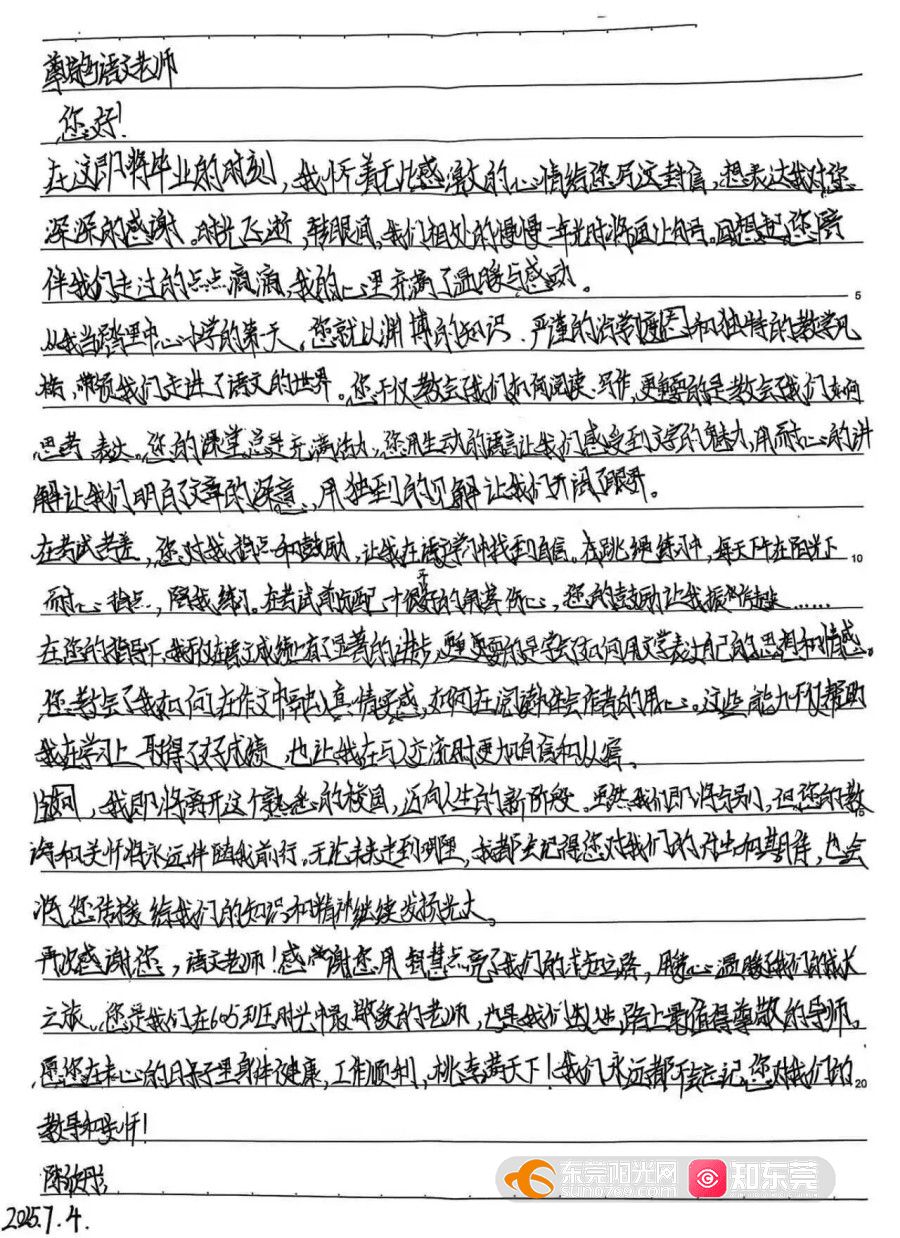 尊敬的语文老师
您好！
在这即将毕业的时刻，我怀着无比感激的心情给您写这封信，想表达我对您
深深的感谢。时光飞逝，转眼间，我们相处的慢慢二年光时将画上句号。回想起，您陪
伴我们走过的点点滴滴，我的心里充满了温暖与感动。
从我当踏里中心小学的第一天，您就以渊博的知识、严谨的治学 和独特的教学风
格，带领我们走进了语文的世界。您不仅教会了我们如何阅读、写作，更重要的是教会了我们如何
思考、表达。您的课堂总是充满活力，您用生动的语言让我们感受到文字的魅力，用耐心的讲
解让我们明白了文章的深意，用独到的见解让我们开 了眼界。
在考试 差，您对我指点和鼓励，让我在语文学中找到自信。在跳绳练习中，每天下午在阳光下
耐心指点，陪我练习。在考试 不很好的 伤心，您的鼓励让我振 ……
在您的指导下，我不仅在语文成绩上有了显著的进步，更重要的是学会了如何用文字表达自己的思想和情感。
您教会了我如何在作文中融入真情实感，如何在阅读中体会作者的用心。这些能力不仅帮助
我在学习上取得了好成绩，也让我在与人交流时更加自信和从容。
，我即将离开这个熟悉的校园，迈向人生的新阶段。虽然我们即将告别，但您的教
诲和关怀将永远伴随我前行。无论未来走到哪里，我都会记得您对我们的付出和期待，也会
将您传授给我们的知识和精神继续发扬光大。
再次感谢您，语文老师！感谢您用智慧点亮了我们的求知之路，用爱心温暖了我们的成长
之旅。您是我们在605班时光中最敬爱的老师，也是我们人生路上最值得尊敬的导师。
愿您在未心的日子里身体健康，工作顺利，桃李满天下！我们永远都不会忘记，您对我们的
教导和关怀！
2025.7.4.
东莞阳光网
SUN0769.COM
知东莞
5
10
15
20